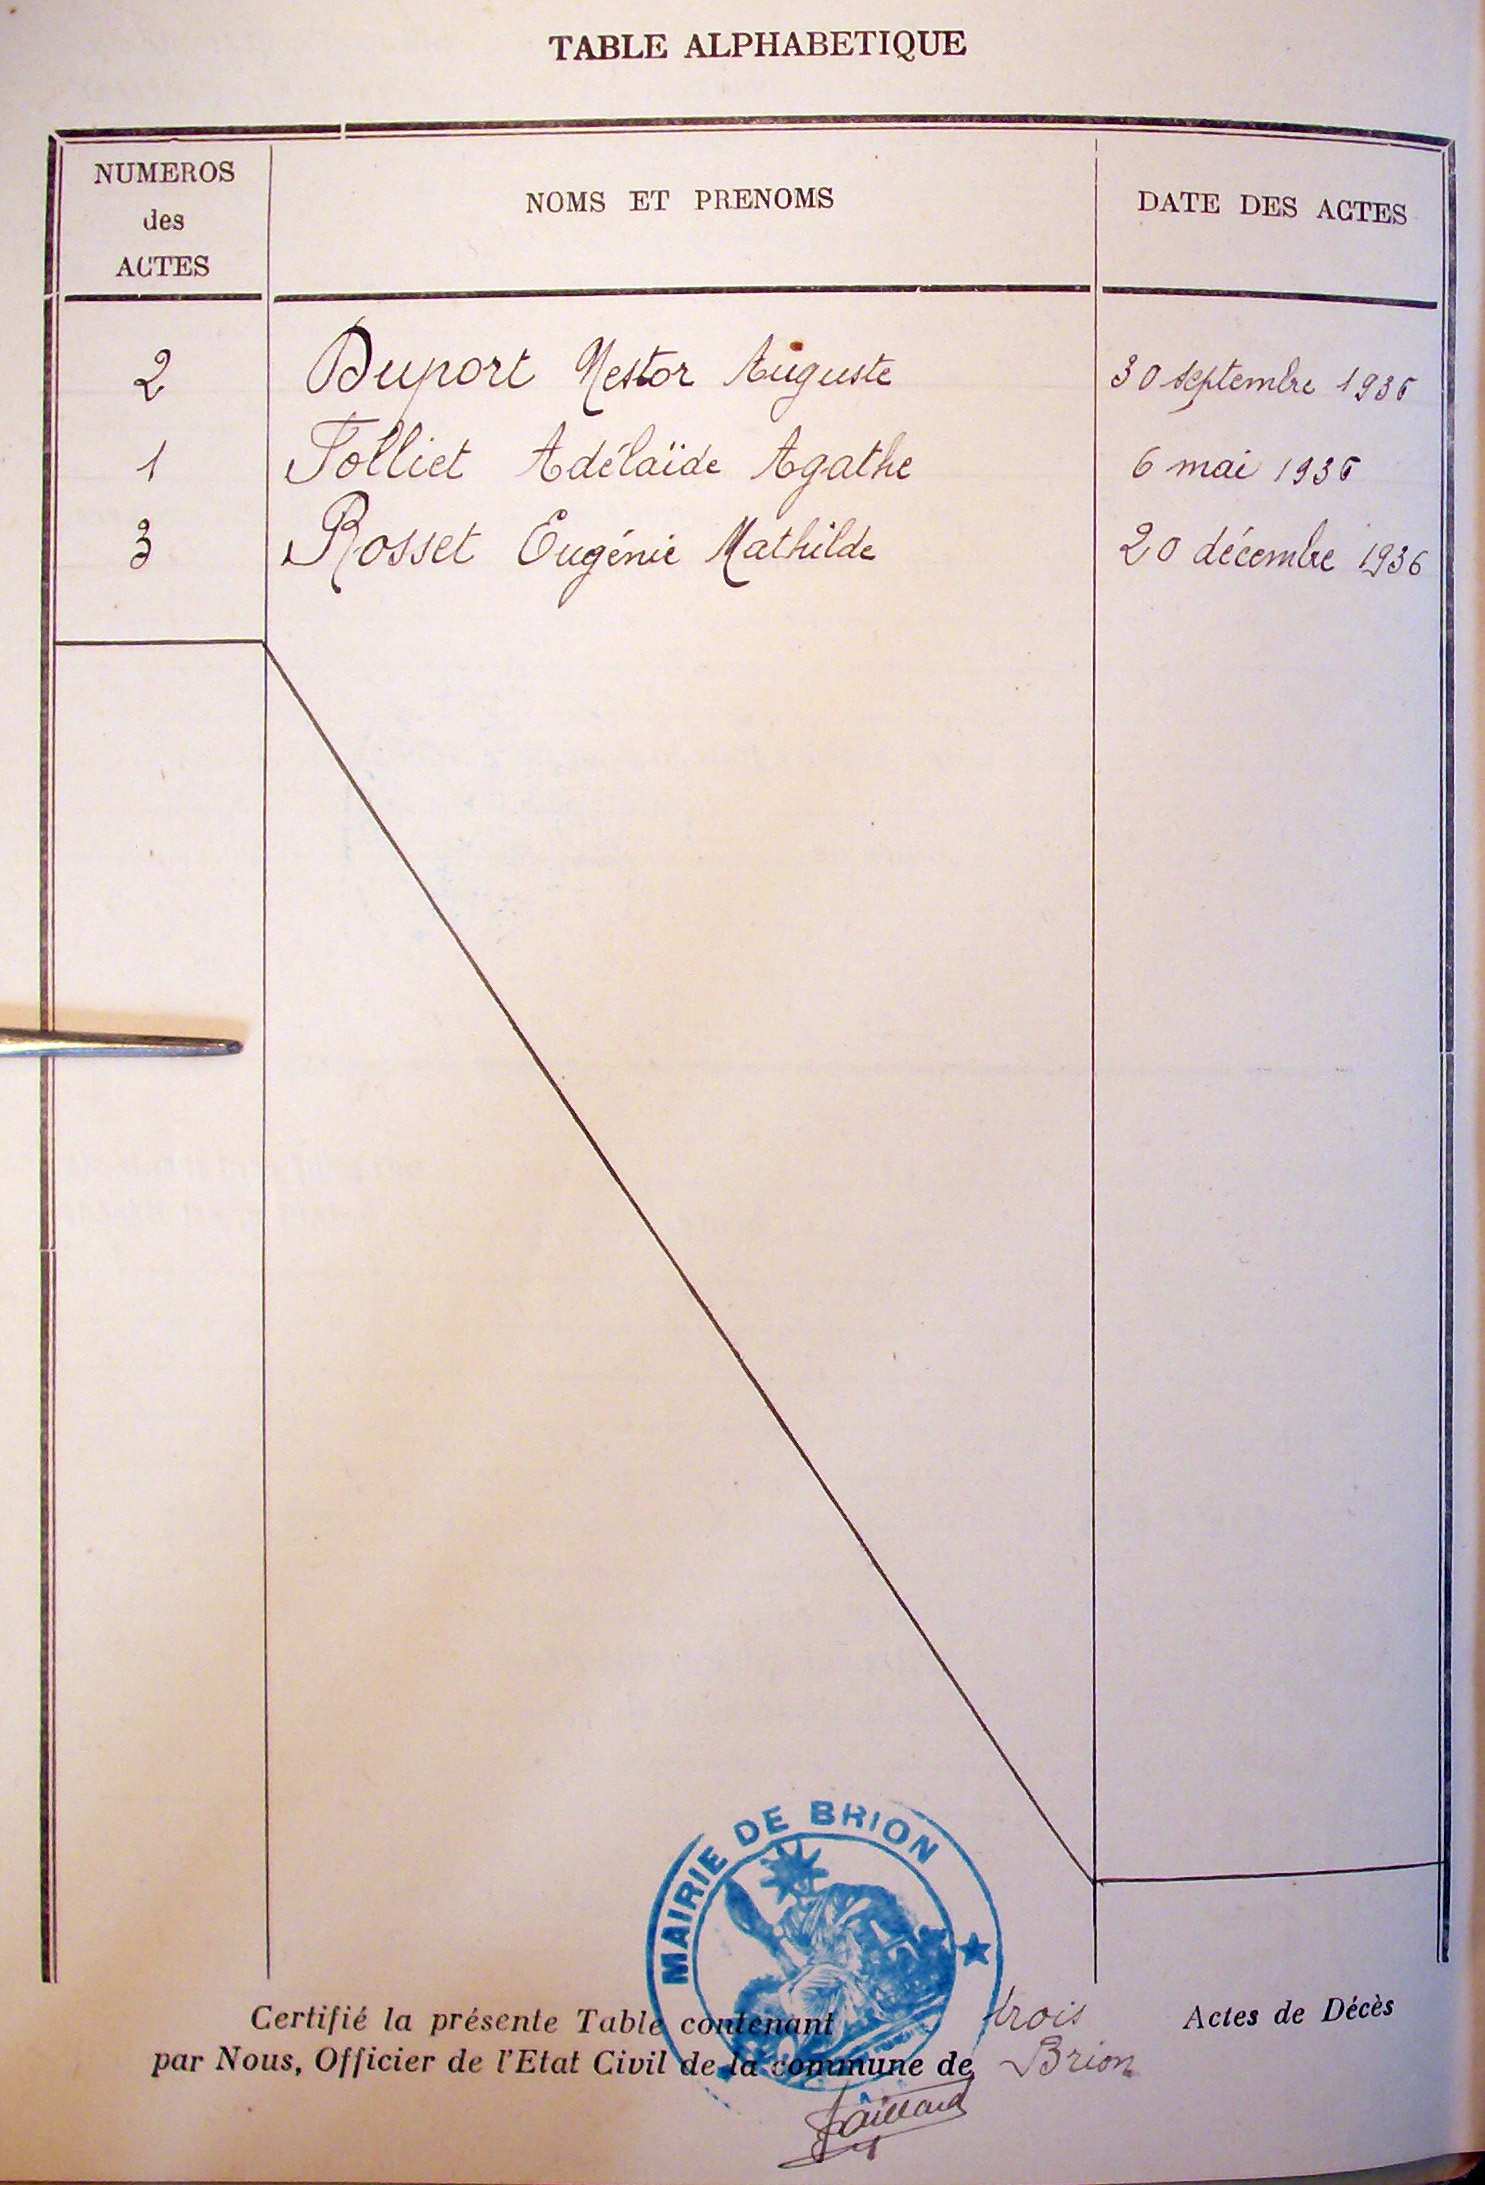 TABLE ALPHABETIQUE
NUMEROS
des
ACTES
NOMS ET PRENOMS
DATE DES ACTES
2 Duport Nestor Auguste 30 septembre 1936
1 Jolliet Adélaïde Agathe 6 mai 1936
3 Rosset Eugénie Mathilde 20 décembre 1936
MAIRIE DE BRION
Certifié la présente Table contenant trois Actes de Décès
par Nous, Officier de l'Etat Civil de la commune de Brion